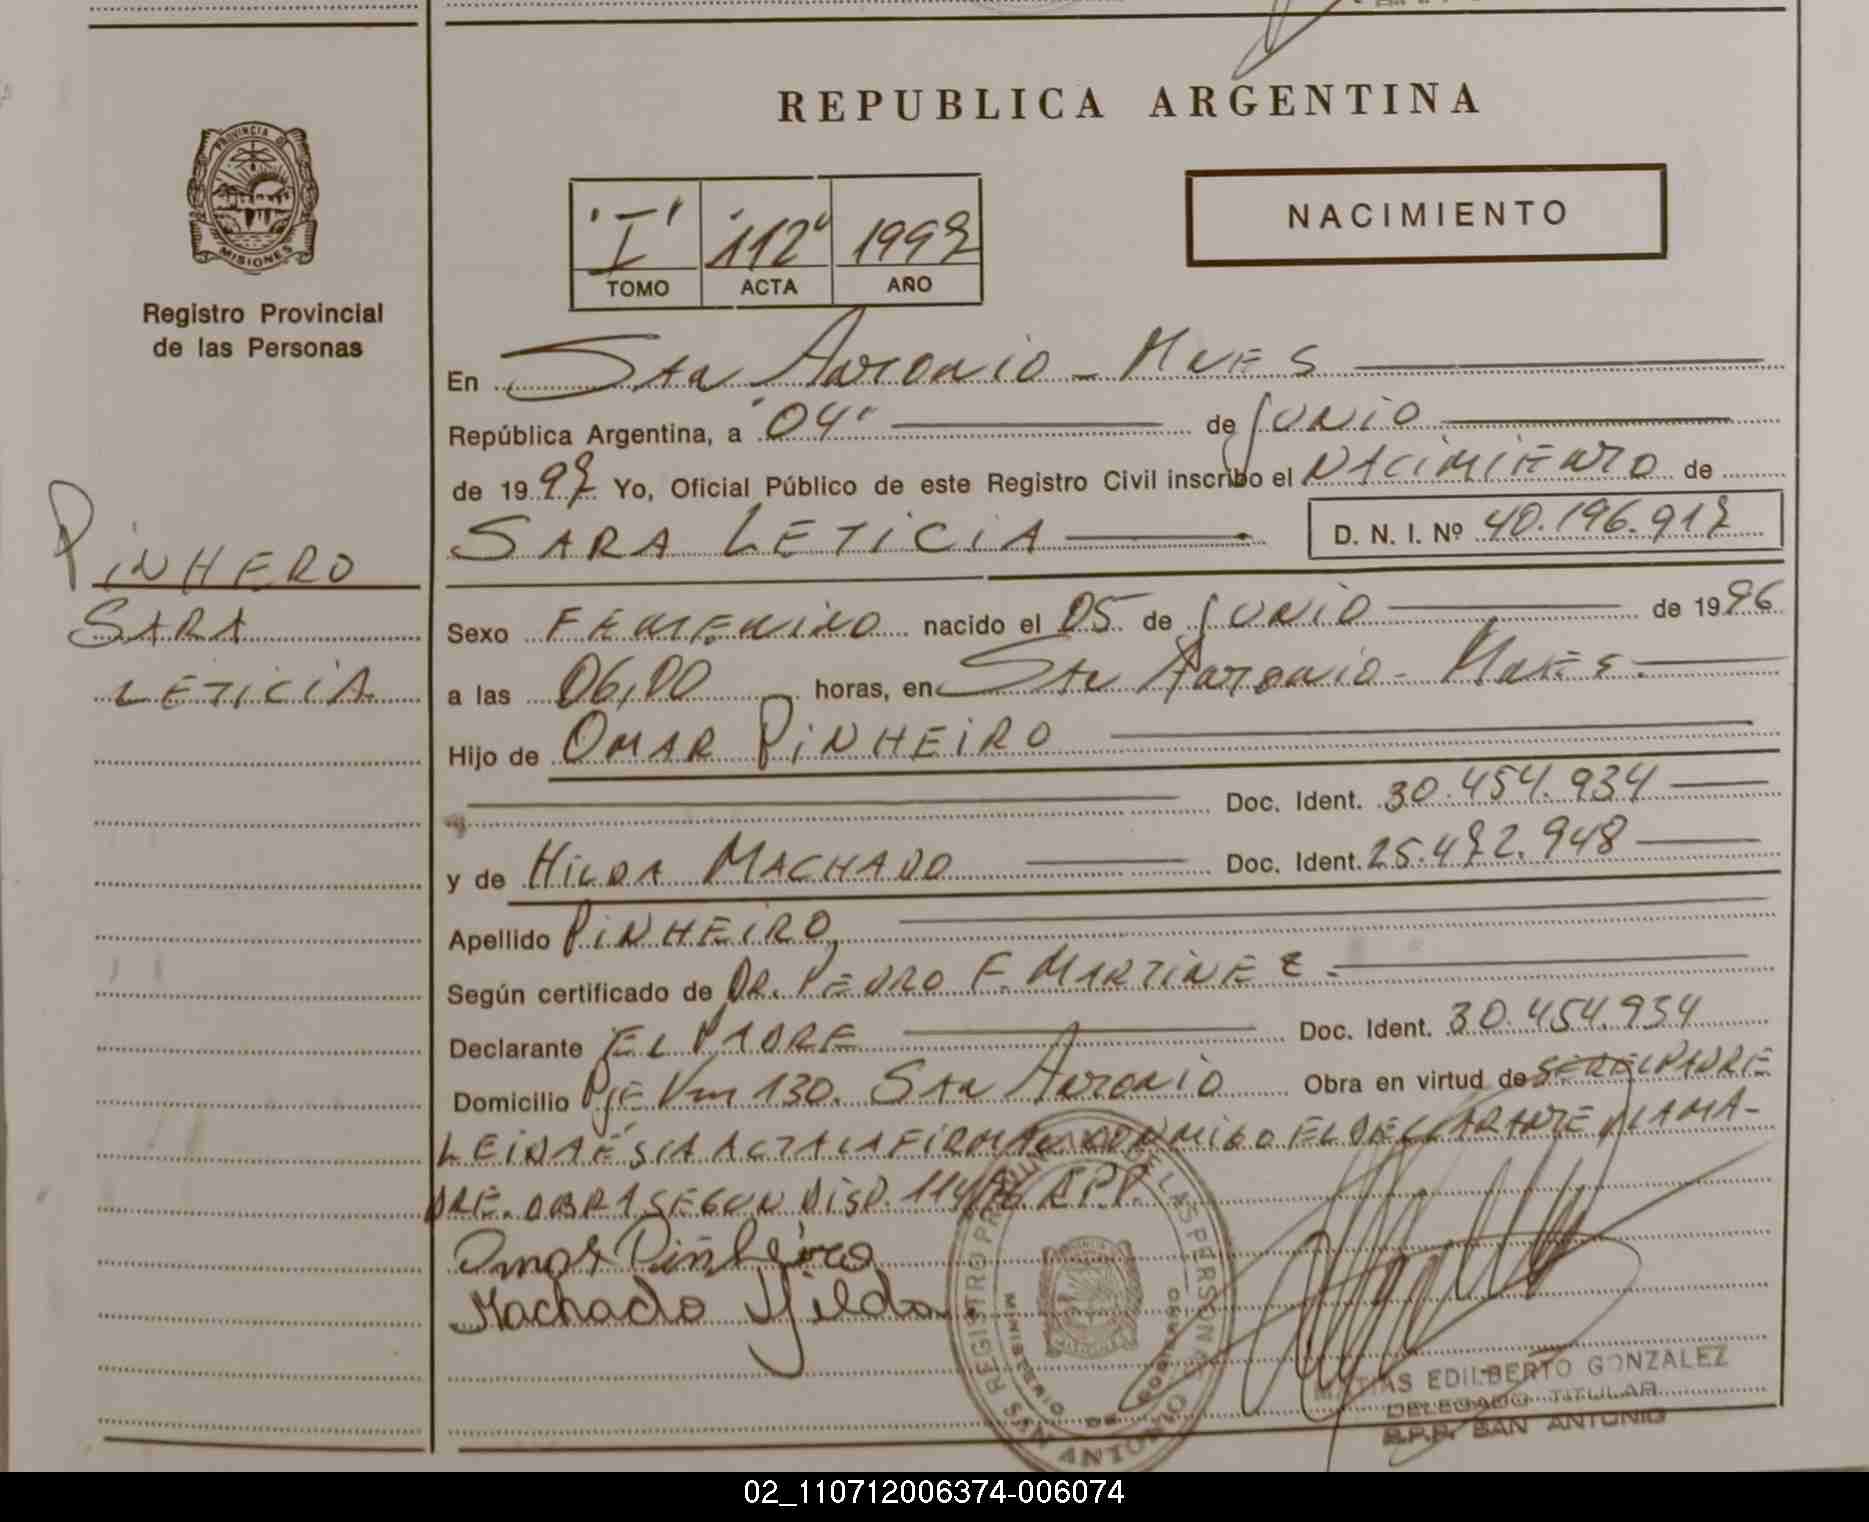 REPUBLICA ARGENTINA
PROVINCIA DE
MISIONES
Registro Provincial
de las Personas
NACIMIENTO
"I" "112" 1997
TOMO ACTA AÑO
En San Antonio - Mnes
República Argentina, a "04" de Junio
de 1997 Yo, Oficial Público de este Registro Civil inscribo el NACIMIENTO de
SARA LETICIA D. N. I. Nº 40.196.917
PINHERO
SARA
LETICIA
Sexo FEMENINO nacido el 05 de Junio de 1996
a las 06,00 horas, en San Antonio - Mnes.
Hijo de OMAR PINHEIRO
Doc. Ident. 30.454.934
y de HILDA MACHADO Doc. Ident. 25.472.948
Apellido PINHEIRO,
Según certificado de DR. PEDRO F. MARTINEZ.
Declarante EL PADRE Doc. Ident. 30.454.934
Domicilio Pje Km 130. San Antonio Obra en virtud de SER EL PADRE
LEIDA ESTA ACTA LA FIRMAN CONMIGO EL DECLARANTE Y LA MA-
DRE. OBRA SEGUN DISP. R.P.P.
Omar Piñheiro
Machado Hilda
REGISTRO PROVINCIAL DE LAS PERSONAS
MINISTERIO DE GOBIERNO
SAN ANTONIO
MATIAS EDILBERTO GONZALEZ
DELEGADO TITULAR
R.P.P. SAN ANTONIO
02_110712006374-006074